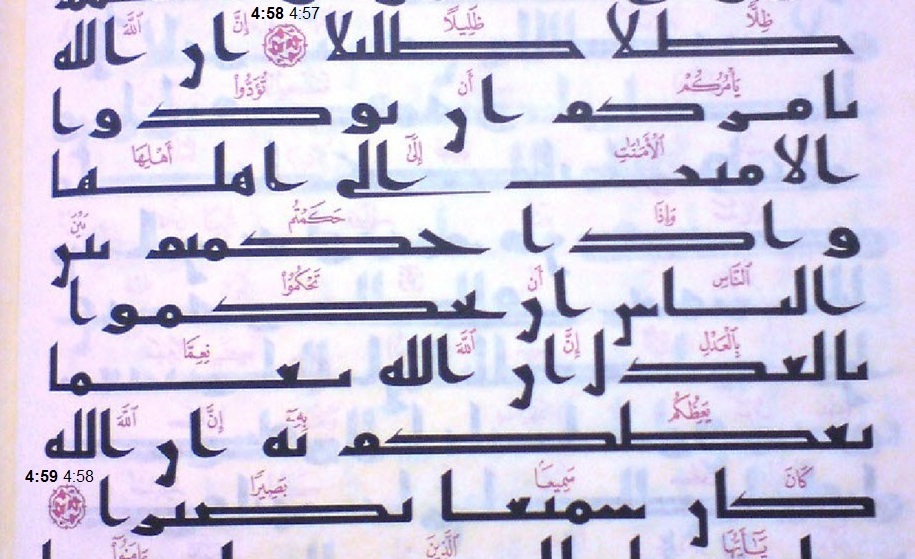 4:58 4:57
ظِلًّا ظَلِيلًا إِنَّ ٱللَّهَ
طلا طليلا ان الله
يَأْمُرُكُمْ أَن تُؤَدُّوا۟
يامركم ان تودوا
ٱلْأَمَٰنَٰتِ إِلَىٰٓ أَهْلِهَا
الامنت الى اهلها
وَإِذَا حَكَمْتُم بَيْنَ
و اذا حكمتم بين
ٱلنَّاسِ أَن تَحْكُمُوا۟
الناس ان تحكموا
بِٱلْعَدْلِ إِنَّ ٱللَّهَ نِعِمَّا
بالعدل ان الله نعما
يَعِظُكُم بِهِۦٓ إِنَّ ٱللَّهَ
يعظكم به ان الله
4:59 4:58
كَانَ سَمِيعًۢا بَصِيرًا
كان سميعا بصيرا
يَٰٓأَيُّهَا ٱلَّذِينَ ءَامَنُوٓا۟